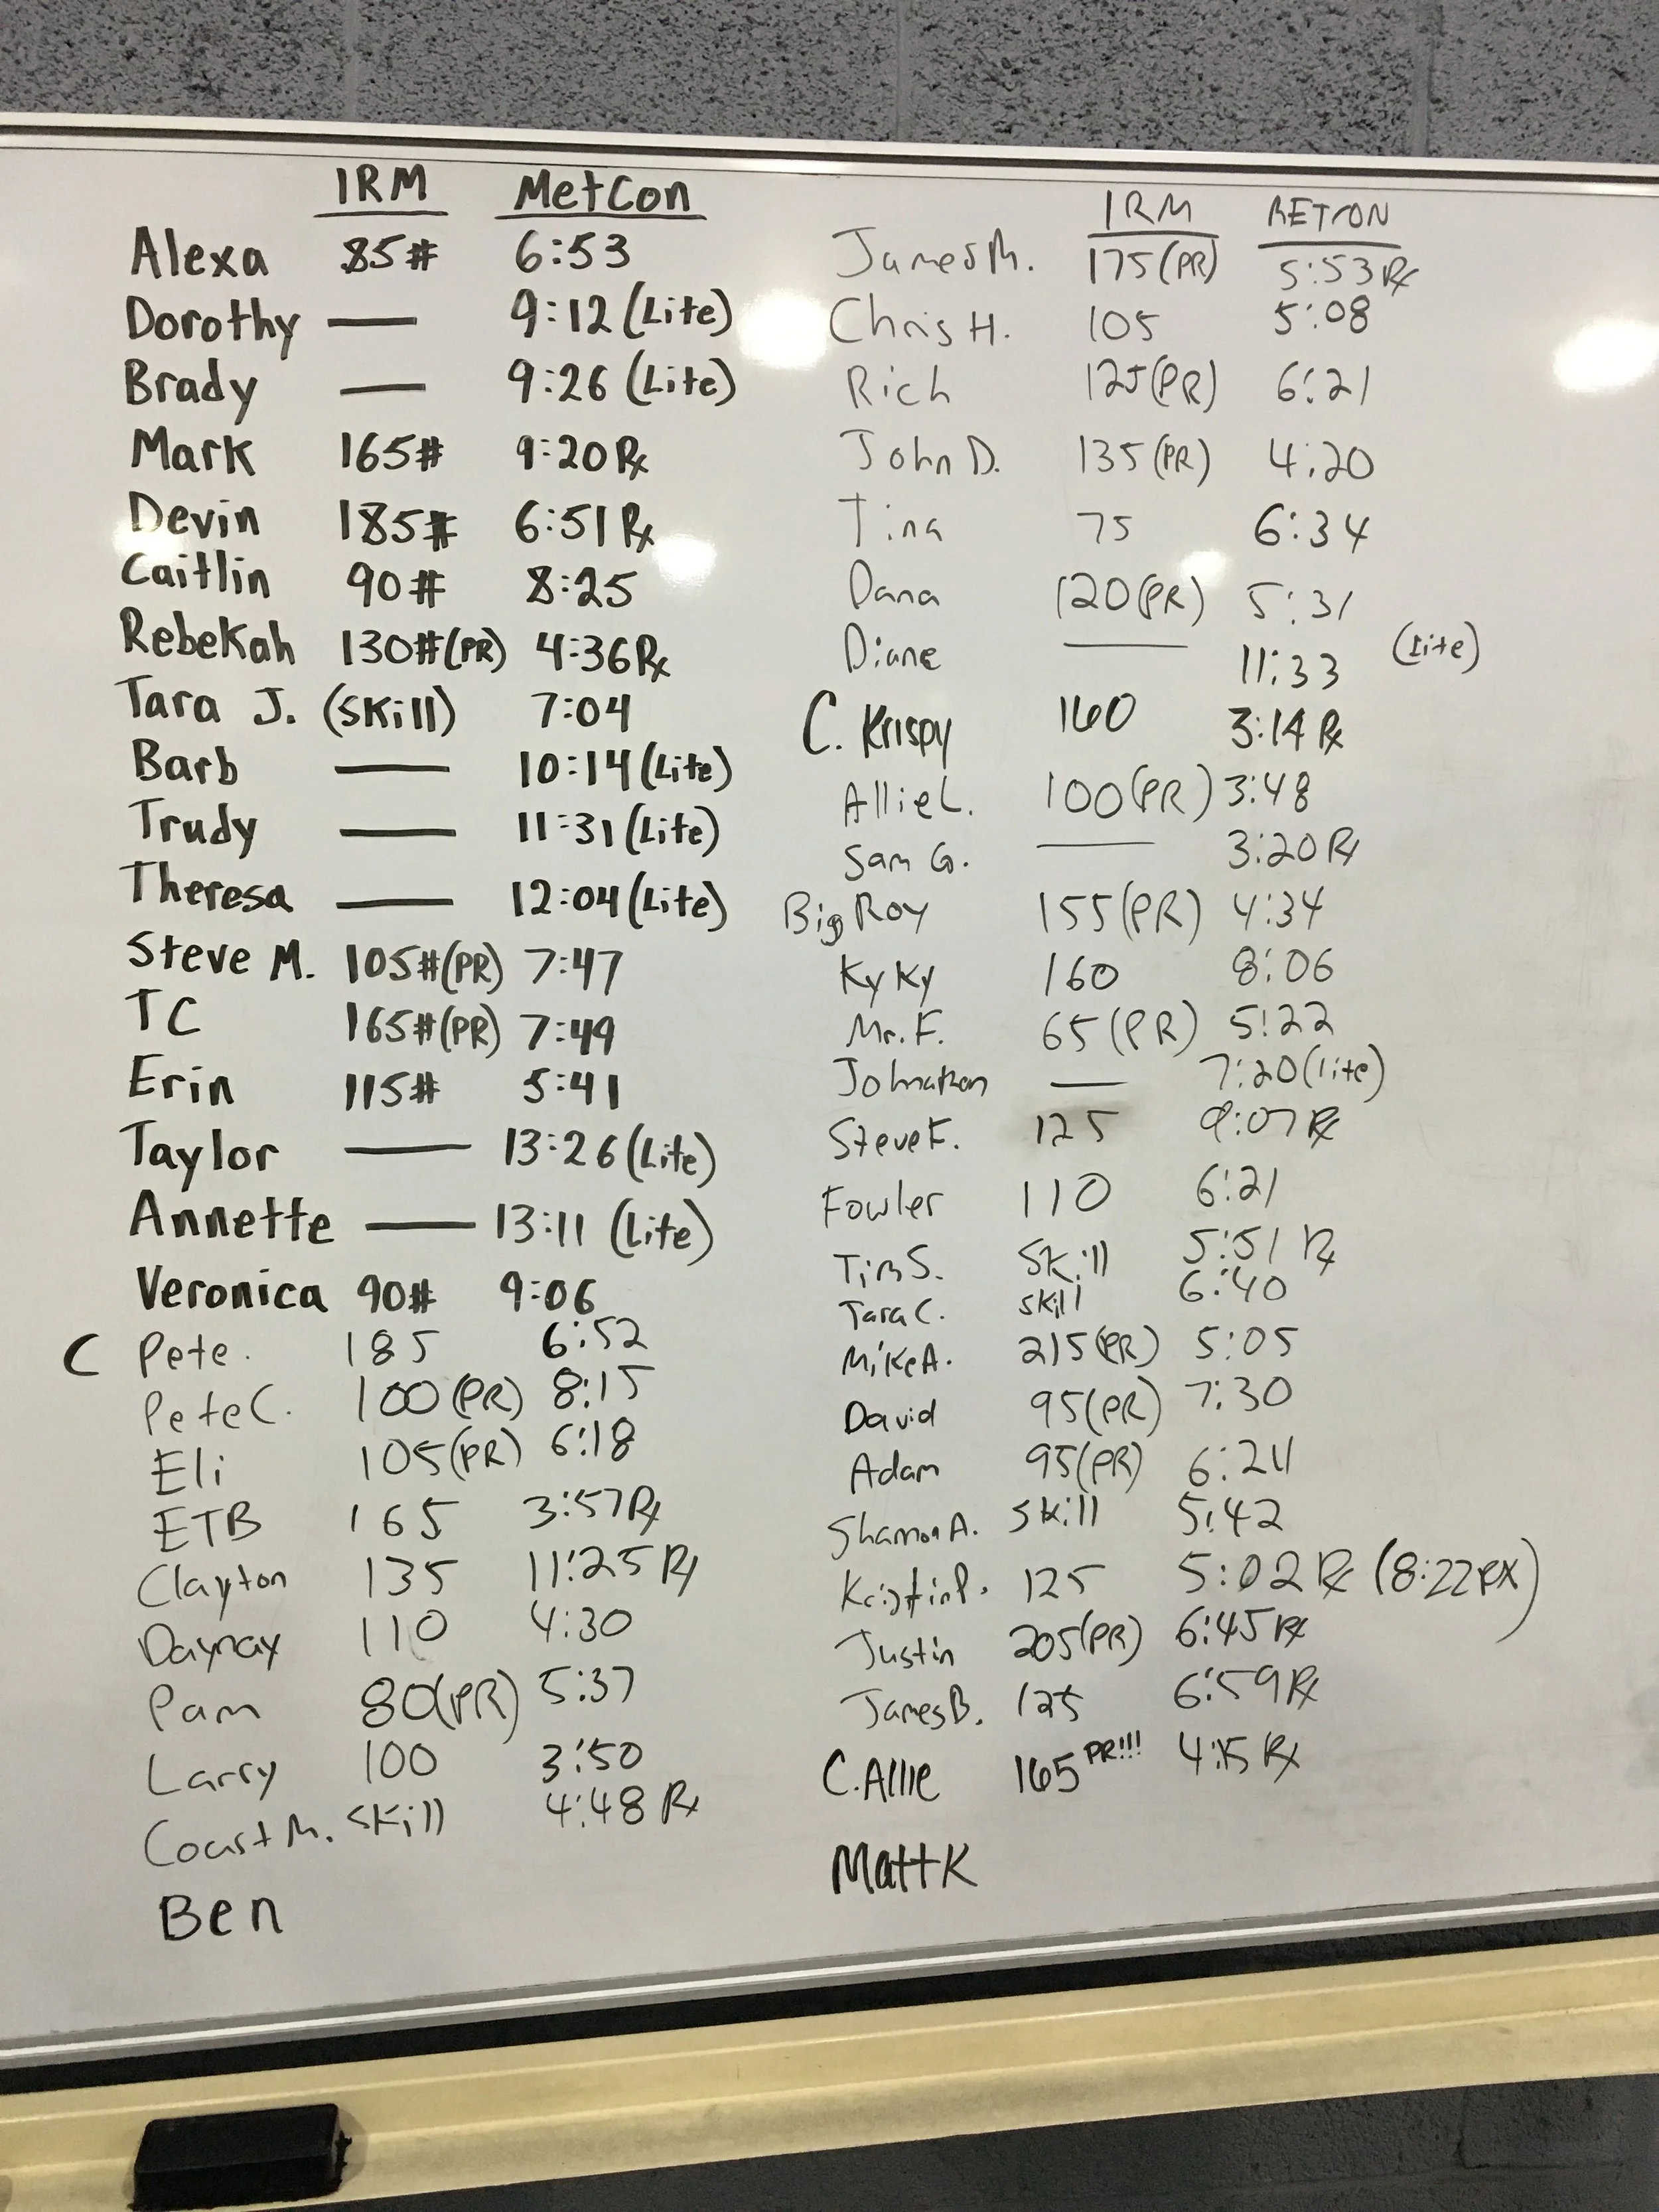 1RM MetCon
Alexa 85# 6:53
Dorothy — 9:12 (Lite)
Brady — 9:26 (Lite)
Mark 165# 9:20 Rx
Devin 185# 6:51 Rx
Caitlin 90# 8:25
Rebekah 130# (PR) 4:36 Rx
Tara J. (Skill) 7:04
Barb — 10:14 (Lite)
Trudy — 11:31 (Lite)
Theresa — 12:04 (Lite)
Steve M. 105# (PR) 7:47
TC 165# (PR) 7:49
Erin 115# 5:41
Taylor — 13:26 (Lite)
Annette — 13:11 (Lite)
Veronica 90# 9:06
C Pete. 185 6:52
Pete C. 100 (PR) 8:15
Eli 105 (PR) 6:18
ETB 165 3:57 Rx
Clayton 135 11:25 Rx
110 4:30
Pam 80 (PR) 5:37
Larry 100 3:50
M. Skill 4:48 Rx
Ben
1RM
James M. 175 (PR) 5:53 Rx
Chris H. 105 5:08
Rich 125 (PR) 6:21
John D. 135 (PR) 4:20
Tina 75 6:34
Dana 120 (PR) 5:31
Diane — 11:33 (Lite)
C. Krispy 160 3:14 Rx
Allie L. 100 (PR) 3:48
Sam G. — 3:20 Rx
Big Roy 155 (PR) 4:34
KyKy 160 8:06
Mr. F. 65 (PR) 5:22
Johnathon — 7:20 (lite)
Steve F. 125 9:07 Rx
Fowler 110 6:21
Tim S. Skill 5:51 Rx
Tara C. skill 6:40
Mike A. 215 (PR) 5:05
David 95 (PR) 7:30
Adam 95 (PR)
Shannon A. skill 5:42
Kristin P. 125 5:02 Rx (8:22 RX)
Justin 205 (PR) 6:45 Rx
James B. 125 6:59 Rx
C. Allie 165 PR!!! 4:15 Rx
Matt K